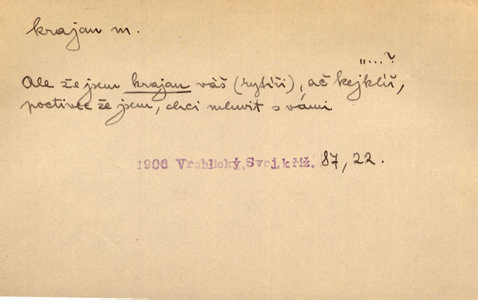 krajan m.
"...?
Ale že jsem krajan váš (rytíři), ač kejklíř,
poctivec že jsem, chci mluvit s vámi
1906 Vrchlický, Svoj kříž. 87, 22.